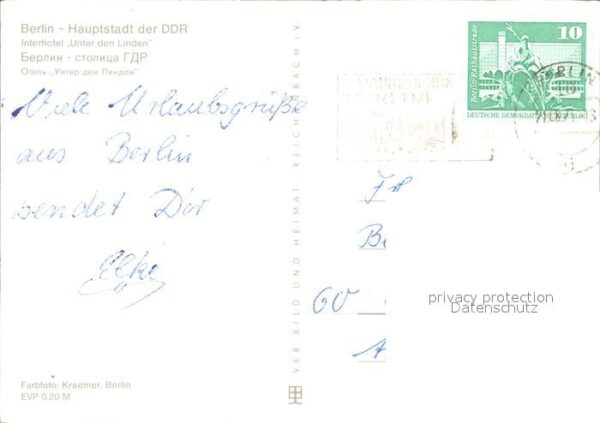 Berlin - Hauptstadt der DDR
Interhotel „Unter den Linden"
Берлин - столица ГДР
Отель „Унтер ден Линден"
Viele Urlaubsgrüße
aus Berlin
sendet Dir
Elke
Farbfoto: Kraemer, Berlin
EVP 0,20 M
VEB BILD UND HEIMAT REICHENBACH i. V.
10
Berlin-Rathausstraße
DEUTSCHE DEMOKRATISCHE REPUBLIK
BERLIN
Fr
B
60
A
privacy protection
Datenschutz